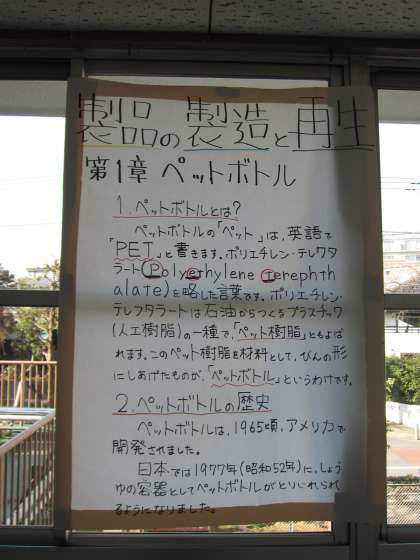 製品の製造と再生
第1章 ペットボトル
1. ペットボトルとは?
ペットボトルの「ペット」は、英語で
「PET」と書きます。ポリエチレン・テレフタ
ラート(Polyethylene Terephth
alate)を略した言葉です。ポリエチレン・
テレフタラートは石油からつくるプラスチック
(人工樹脂)の一種で、「ペット樹脂」ともよば
れます。このペット樹脂を材料として、びんの形
にしあげたものが、「ペットボトル」というわけです。
2. ペットボトルの歴史
ペットボトルは、1965頃、アメリカで
開発されました。
日本では1977年(昭和52年)に、しょう
ゆの容器としてペットボトルがとりいれられ
るようになりました。